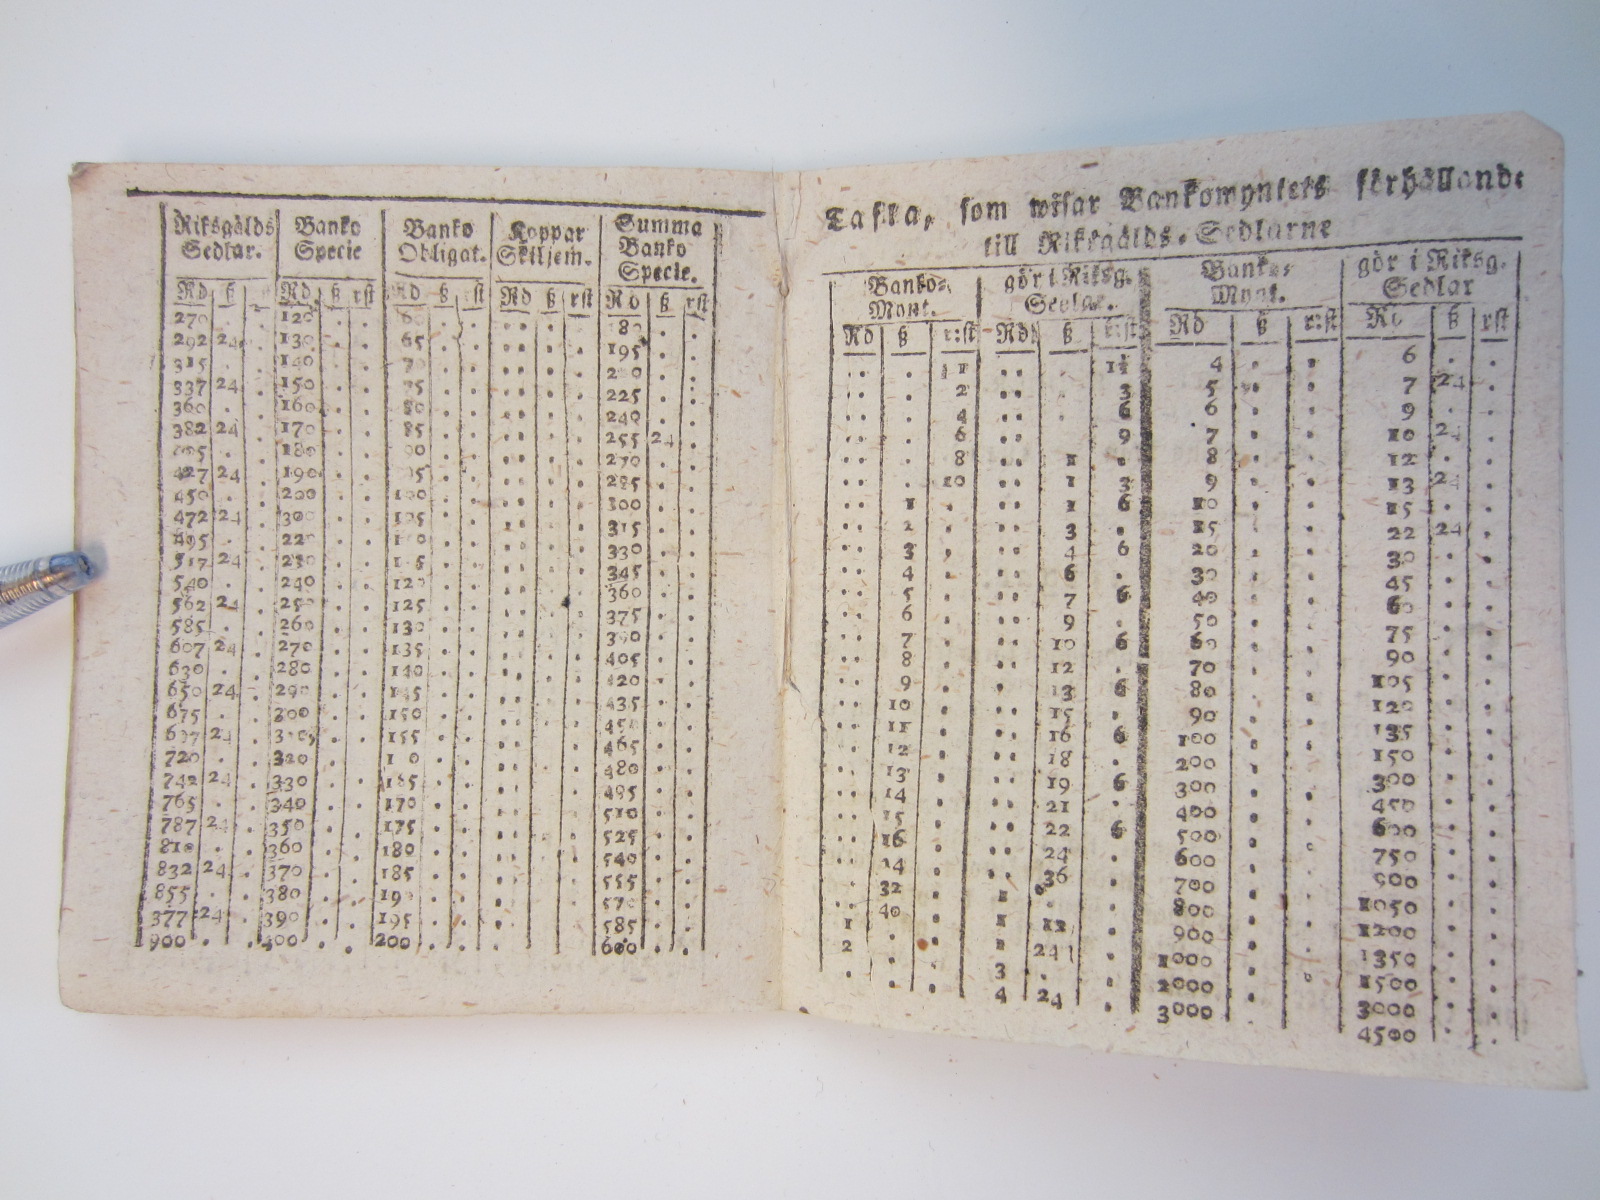 Riksgälds Sedlar. | Banko Specie | Banko Obligat. | Koppar Skiljem. | Summa Banko Specie.
Rd ß | Rd ß rst | Rd ß rst | Rd ß rst | Rd ß rst
270 . | 120 . . | . . | .. . . | 180 . .
292 24 . | 130 . . | 65 . . | .. . . | 195 . .
315 . . | 140 . . | 70 . . | .. . . | . .
337 24 . | 150 . . | 75 . . | .. . . | 225 . .
360 . . | 160 . . | 80 . . | .. . . | 240 . .
382 24 . | 170 . . | 85 . . | .. . . | 255 24 .
. . | 180 . . | 90 . . | .. . . | 270 . .
427 24 . | 190 . . | . . | .. . . | 285 . .
450 . . | 200 . . | 100 . . | .. . . | 300 . .
472 24 . | 300 . . | 105 . . | .. . . | 315 . .
495 . . | 220 . . | . . | .. . . | 330 . .
517 24 . | 230 . . | . . | .. . . | 345 . .
540 . . | 240 . . | 120 . . | .. . . | 360 . .
562 24 . | 250 . . | 125 . . | .. . . | 375 . .
585 . . | 260 . . | 130 . . | .. . . | 390 . .
607 24 . | 270 . . | 135 . . | .. . . | 405 . .
630 . . | 280 . . | 140 . . | .. . . | 420 . .
650 24 . | 290 . . | 145 . . | .. . . | 435 . .
675 . . | 300 . . | 150 . . | .. . . | . .
697 24 . | . . | 155 . . | .. . . | 465 . .
720 . . | 320 . . | . . | .. . . | 480 . .
742 24 . | 330 . . | 165 . . | .. . . | 495 . .
765 . . | 340 . . | 170 . . | .. . . | 510 . .
787 24 . | 350 . . | 175 . . | .. . . | 525 . .
810 . . | 360 . . | 180 . . | .. . . | 540 . .
832 24 . | 370 . . | 185 . . | .. . . | 555 . .
855 . . | 380 . . | 190 . . | .. . . | 570 . .
377 24 . | 390 . . | 195 . . | .. . . | 585 . .
900 . . | 400 . . | 200 . . | . . . | 600 . .
Tafla, som wisar Bankomyntets förhållande
till Riksgälds-Sedlarne
Banko-Mynt. | gör i Riksg. Sedlar. | Banko-Mynt. | gör i Riksg. Sedlar
Rd ß r:st | Rd ß r:st | Rd ß r:st | Rd ß rst
.. . 1 | .. . 1½ | 4 . . | 6 . .
.. . 2 | .. . 3 | 5 . . | 7 24 .
.. . 4 | .. . 6 | 6 . . | 9 . .
.. . 6 | .. . 9 | 7 . . | 10 24 .
.. . 8 | .. 1 . | 8 . . | 12 . .
.. . 10 | .. 1 3 | 9 . . | 13 24 .
.. 1 . | .. 1 6 | 10 . . | 15 . .
.. 2 . | .. 3 . | 15 . . | 22 24 .
.. 3 . | .. 4 6 | 20 . . | 30 . .
.. 4 . | .. 6 . | 30 . . | 45 . .
.. 5 . | .. 7 6 | 40 . . | 60 . .
.. 6 . | .. 9 . | 50 . . | 75 . .
.. 7 . | .. 10 6 | 60 . . | 90 . .
.. 8 . | .. 12 . | 70 . . | 105 . .
.. 9 . | .. 13 6 | 80 . . | 120 . .
.. 10 . | .. 15 . | 90 . . | 135 . .
.. 11 . | .. 16 6 | 100 . . | 150 . .
.. 12 . | .. 18 . | 200 . . | 300 . .
.. 13 . | .. 19 6 | 300 . . | 450 . .
.. 14 . | .. 21 . | 400 . . | 600 . .
.. 15 . | .. 22 6 | 500 . . | 750 . .
.. 16 . | .. 24 . | 600 . . | 900 . .
.. 24 . | .. 36 . | 700 . . | 1050 . .
.. 32 . | 1 . . | 800 . . | 1200 . .
.. 40 . | 1 12 . | 900 . . | 1350 . .
1 . . | 1 24 . | 1000 . . | 1500 . .
2 . . | 3 . . | 2000 . . | 3000 . .
. . . | 4 24 . | 3000 . . | 4500 . .